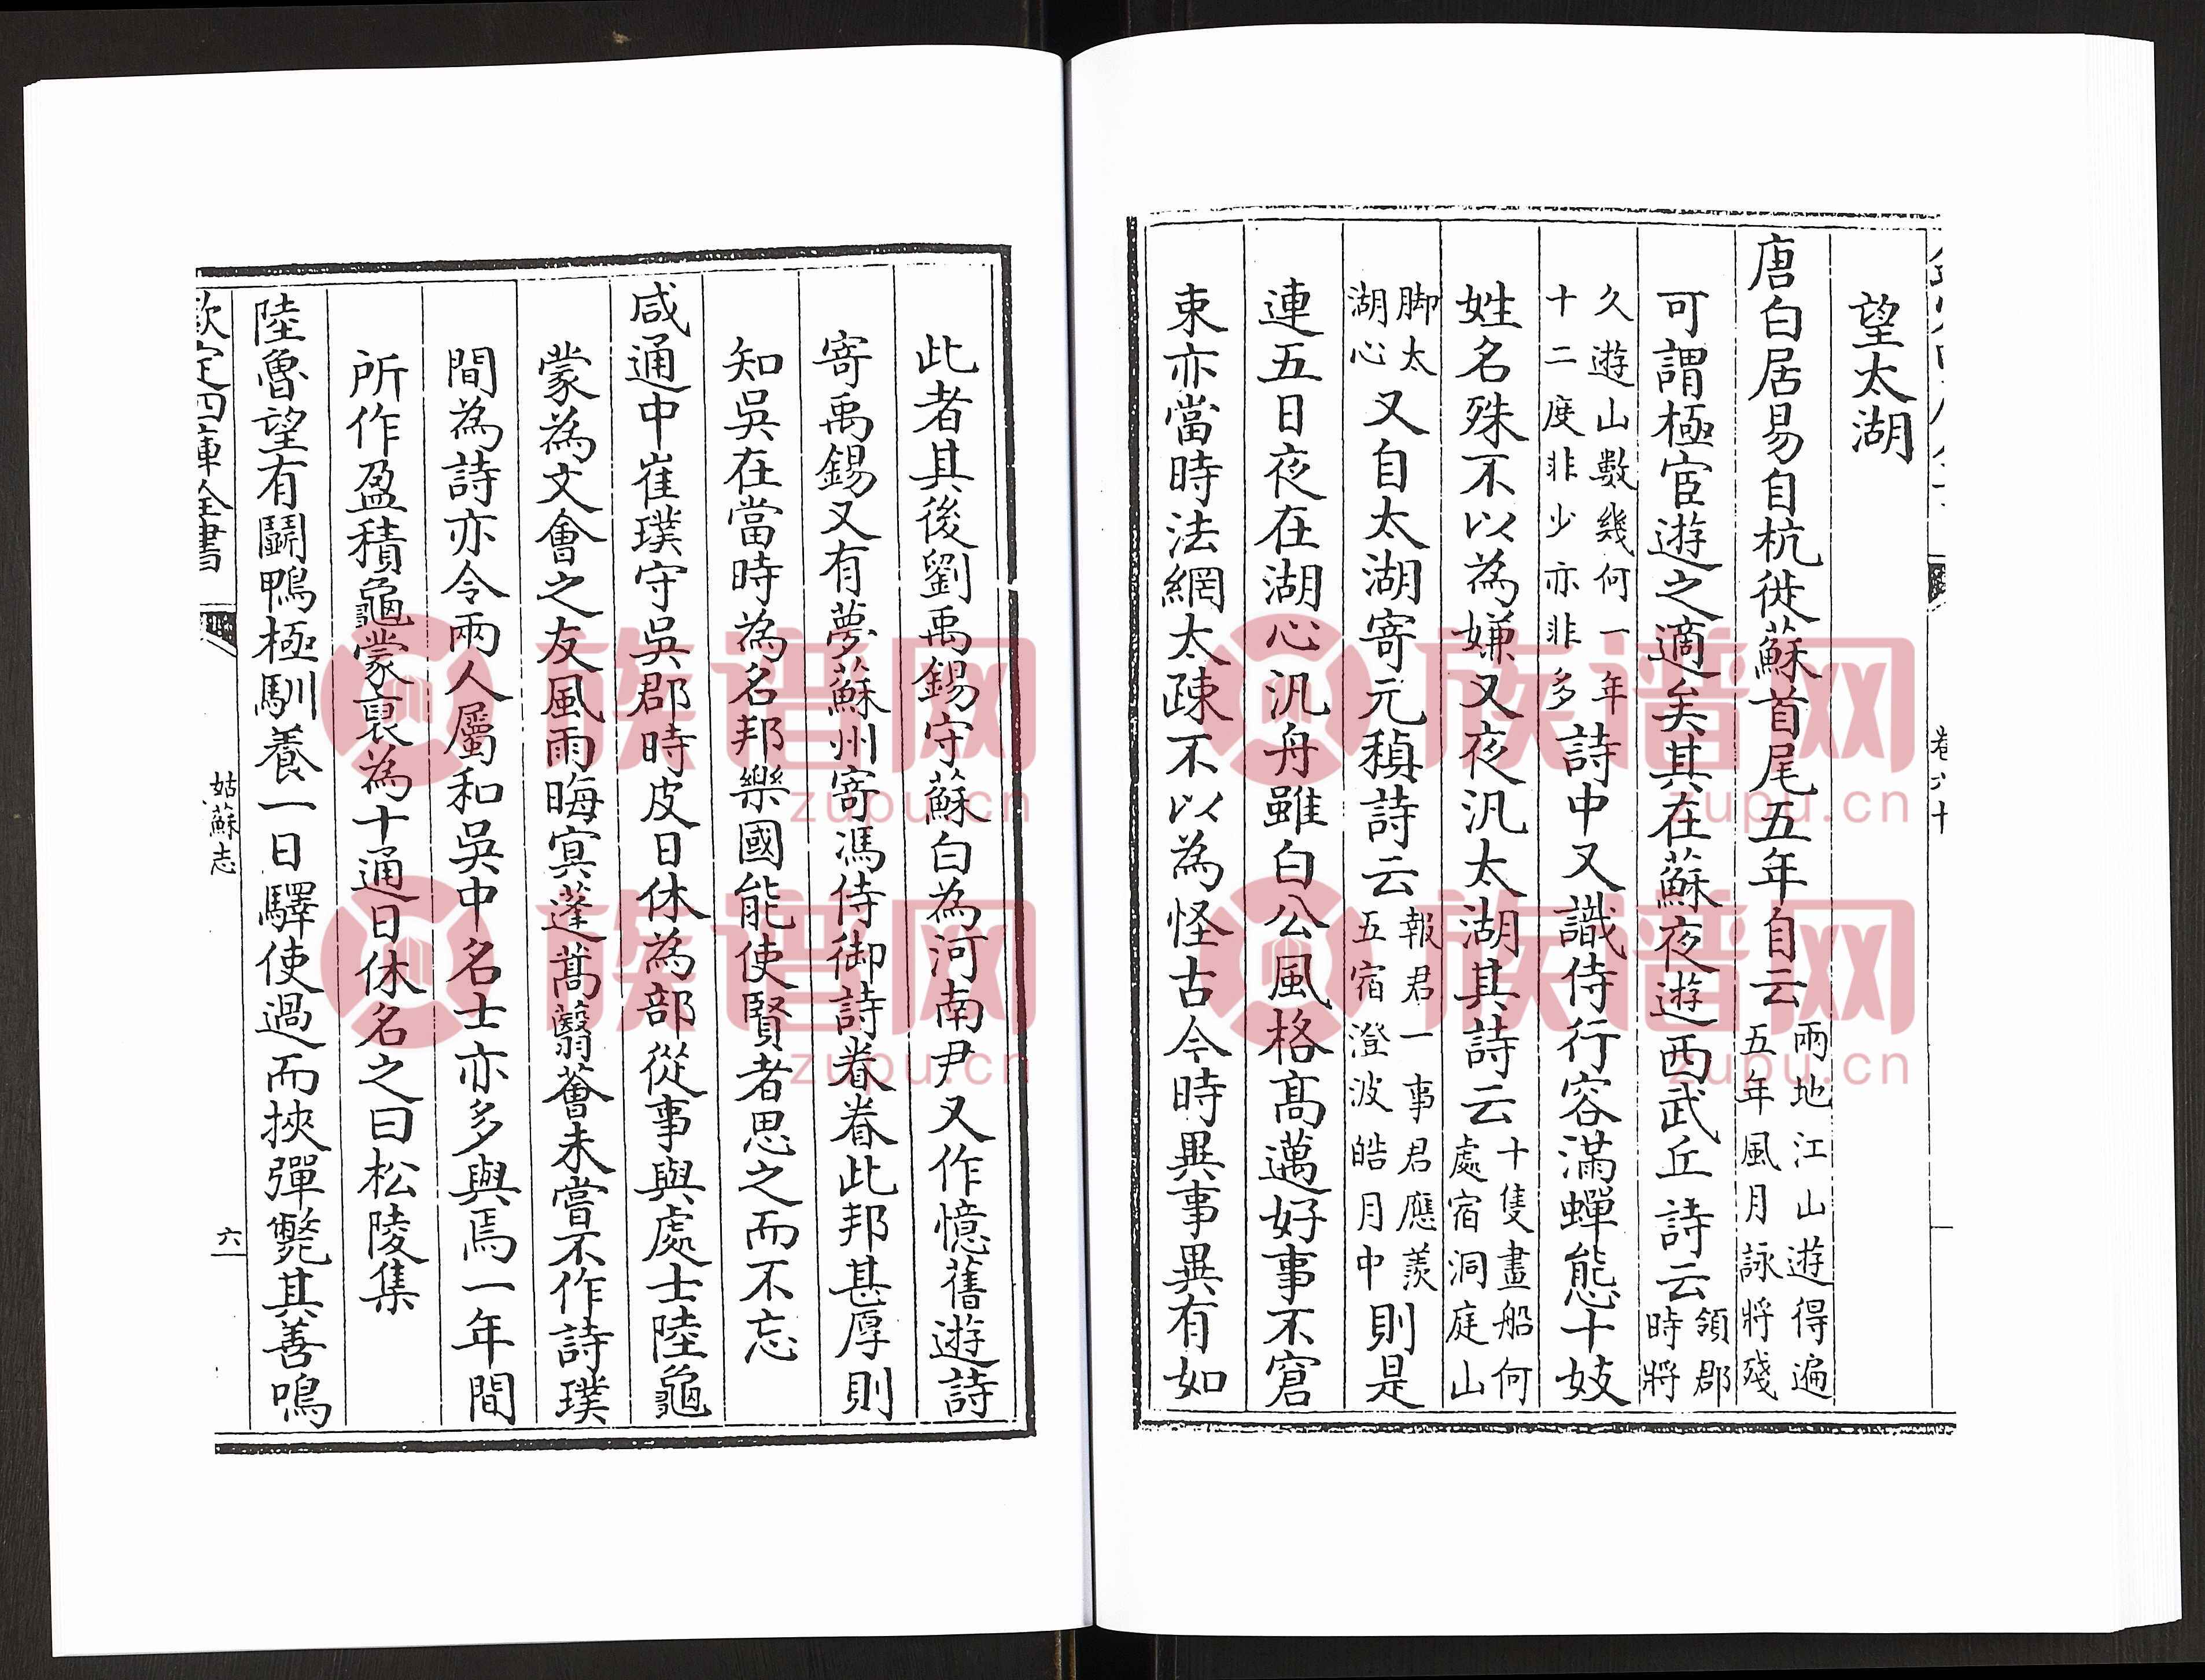 望太湖
唐白居易自杭徙蘇首尾五年自云兩地江山遊得遍五年風月詠將殘
可謂極宦遊之適矣其在蘇夜遊西武丘詩云領郡時將
久遊山數幾何一年十二度非少亦非多詩中又識侍行容滿蟬態十妓
姓名殊不以為嫌又夜汎太湖其詩云十隻畫船何處宿洞庭山
脚太湖心又自太湖寄元稹詩云報君一事君應羨五宿澄波皓月中則是
連五日夜在湖心汎舟雖白公風格高邁好事不窘
束亦當時法網太疎不以為怪古今時異事異有如
卷六十
此者其後劉禹錫守蘇白為河南尹又作憶舊遊詩
寄禹錫又有夢蘇州寄馮侍御詩眷眷此邦甚厚則
知吳在當時為名邦樂國能使賢者思之而不忘
咸通中崔璞守吳郡時皮日休為部從事與處士陸龜
蒙為文會之友風雨晦冥蓬蒿翳薈未嘗不作詩璞
間為詩亦令兩人屬和吳中名士亦多與焉一年間
所作盈積龜蒙裒為十通日休名之曰松陵集
陸魯望有鬭鴨極馴養一日驛使過而挾彈斃其善鳴
欽定四庫全書
姑蘇志
六
族谱网
zupu.cn
族谱网
zupu.cn
族谱网
zupu.cn
族谱网
zupu.cn